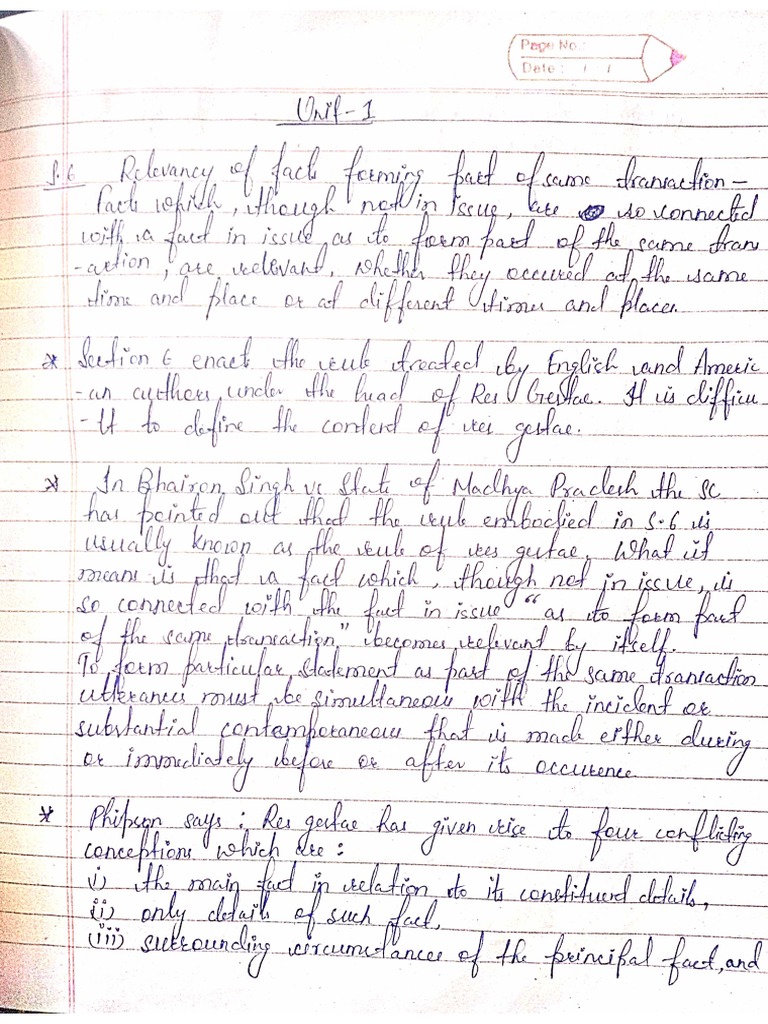 Page No.:
Date: / /
Unit-1
S.6 Relevancy of facts forming part of same transaction-
Facts which, though not in issue, are so connected
with a fact in issue as to form part of the same tran
-action, are relevant, whether they occured at the same
time and place or at different times and places.
* Section 6 enact the rule treated by English and Americ
-an authors under the head of Res Gestae. It is difficu
-lt to define the content of res gestae.
* In Bhairon Singh vs State of Madhya Pradesh the SC
has pointed out that the rule embodied in S.6 is
usually known as the rule of res gestae. What it
means is that a fact which, though not in issue, is
so connected with the fact in issue "as to form part
of the same transaction" becomes relevant by itself.
To form particular statement as part of the same transaction
utterances must be simultaneous with the incident or
substantial contemporaneous that is made either during
or immediately before or after its occurence
* Phipson says: Res gestae has given rise to four conflicting
conceptions which are:
i) the main fact in relation to its constituend details,
ii) only details of such fact,
(iii) surrounding circumstances of the principal fact, and